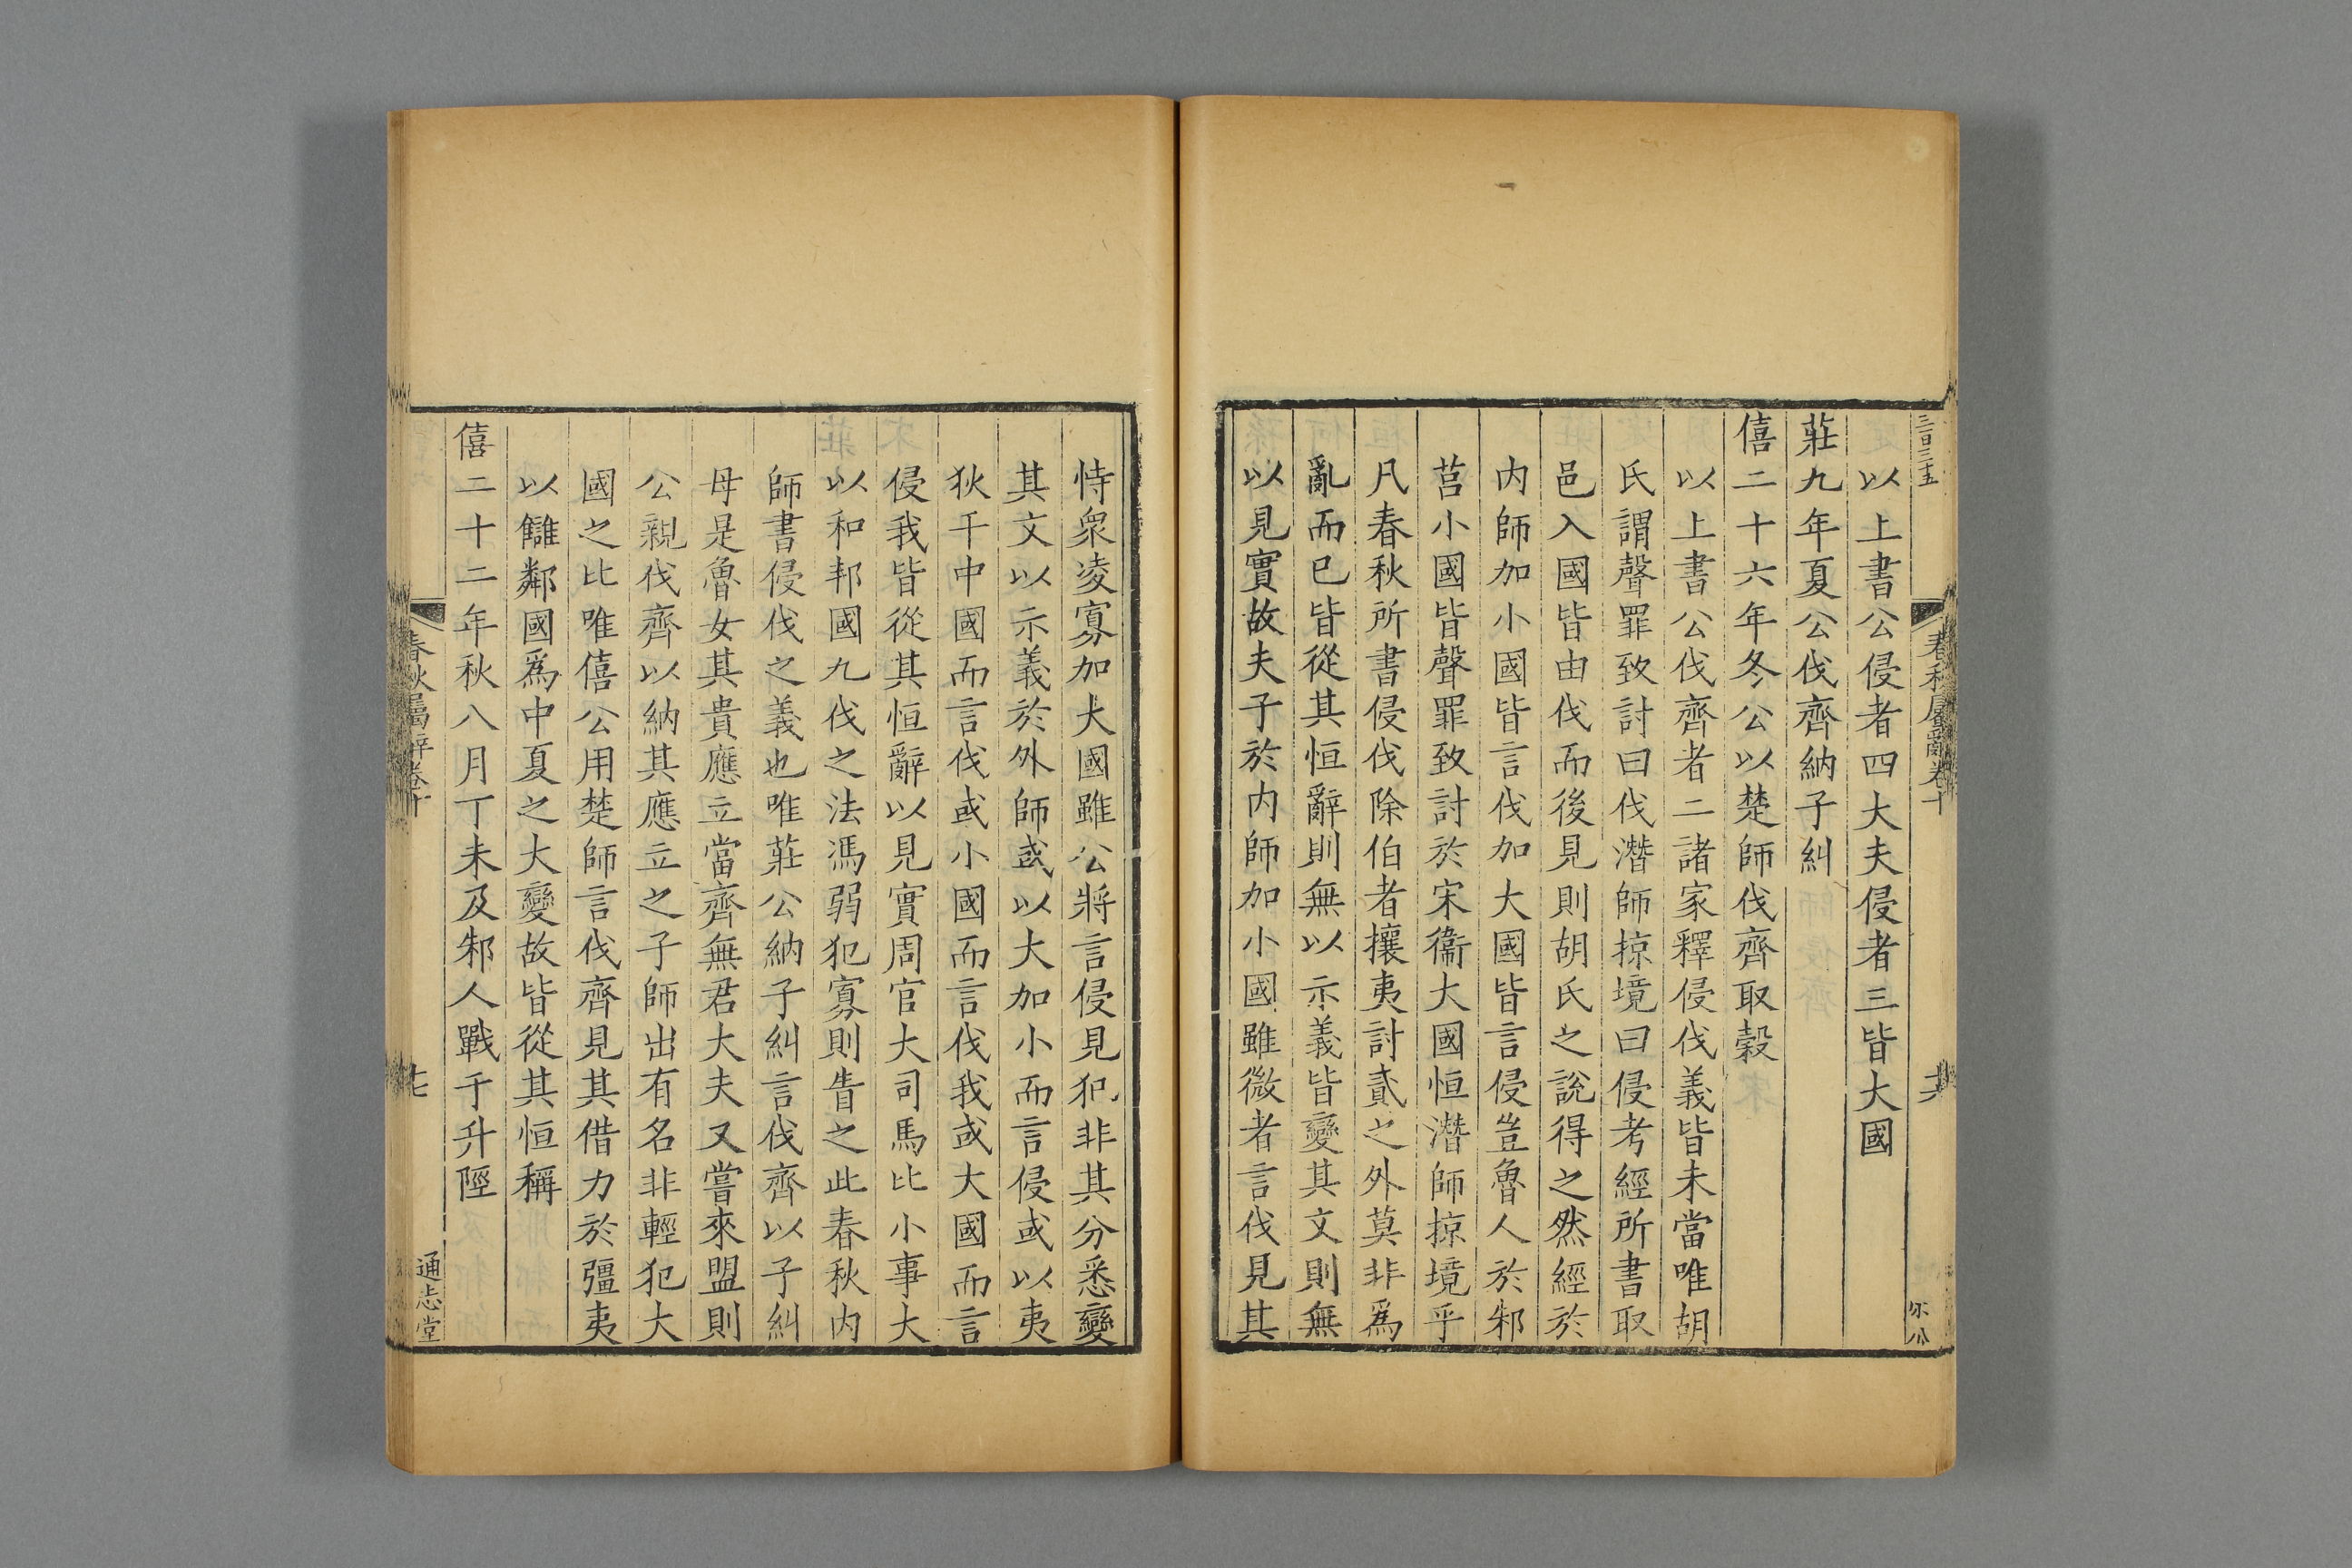 三百三十五
春秋屬辭卷十
以上書公侵者四大夫侵者三皆大國
莊九年夏公伐齊納子糾
僖二十六年冬公以楚師伐齊取穀
以上書公伐齊者二諸家釋侵伐義皆未當唯胡
氏謂聲罪致討曰伐潛師掠境曰侵考經所書取
邑入國皆由伐而後見則胡氏之說得之然經於
内師加小國皆言伐加大國皆言侵豈魯人於邾
莒小國皆聲罪致討於宋衞大國恒潛師掠境乎
凡春秋所書侵伐除伯者攘夷討貳之外莫非爲
亂而已皆從其恒辭則無以示義皆變其文則無
以見實故夫子於内師加小國雖微者言伐見其
恃衆凌寡加大國雖公將言侵見犯非其分悉變
其文以示義於外師或以大加小而言侵或以夷
狄干中國而言伐或小國而言伐我或大國而言
侵我皆從其恒辭以見實周官大司馬比小事大
以和邦國九伐之法馮弱犯寡則眚之此春秋内
師書侵伐之義也唯莊公納子糾言伐齊以子糾
母是魯女其貴應立當齊無君大夫又嘗來盟則
公親伐齊以納其應立之子師出有名非輕犯大
國之比唯僖公用楚師言伐齊見其借力於彊夷
以讎鄰國爲中夏之大變故皆從其恒稱
僖二十二年秋八月丁未及邾人戰于升陘
春秋屬辭卷十
通志堂